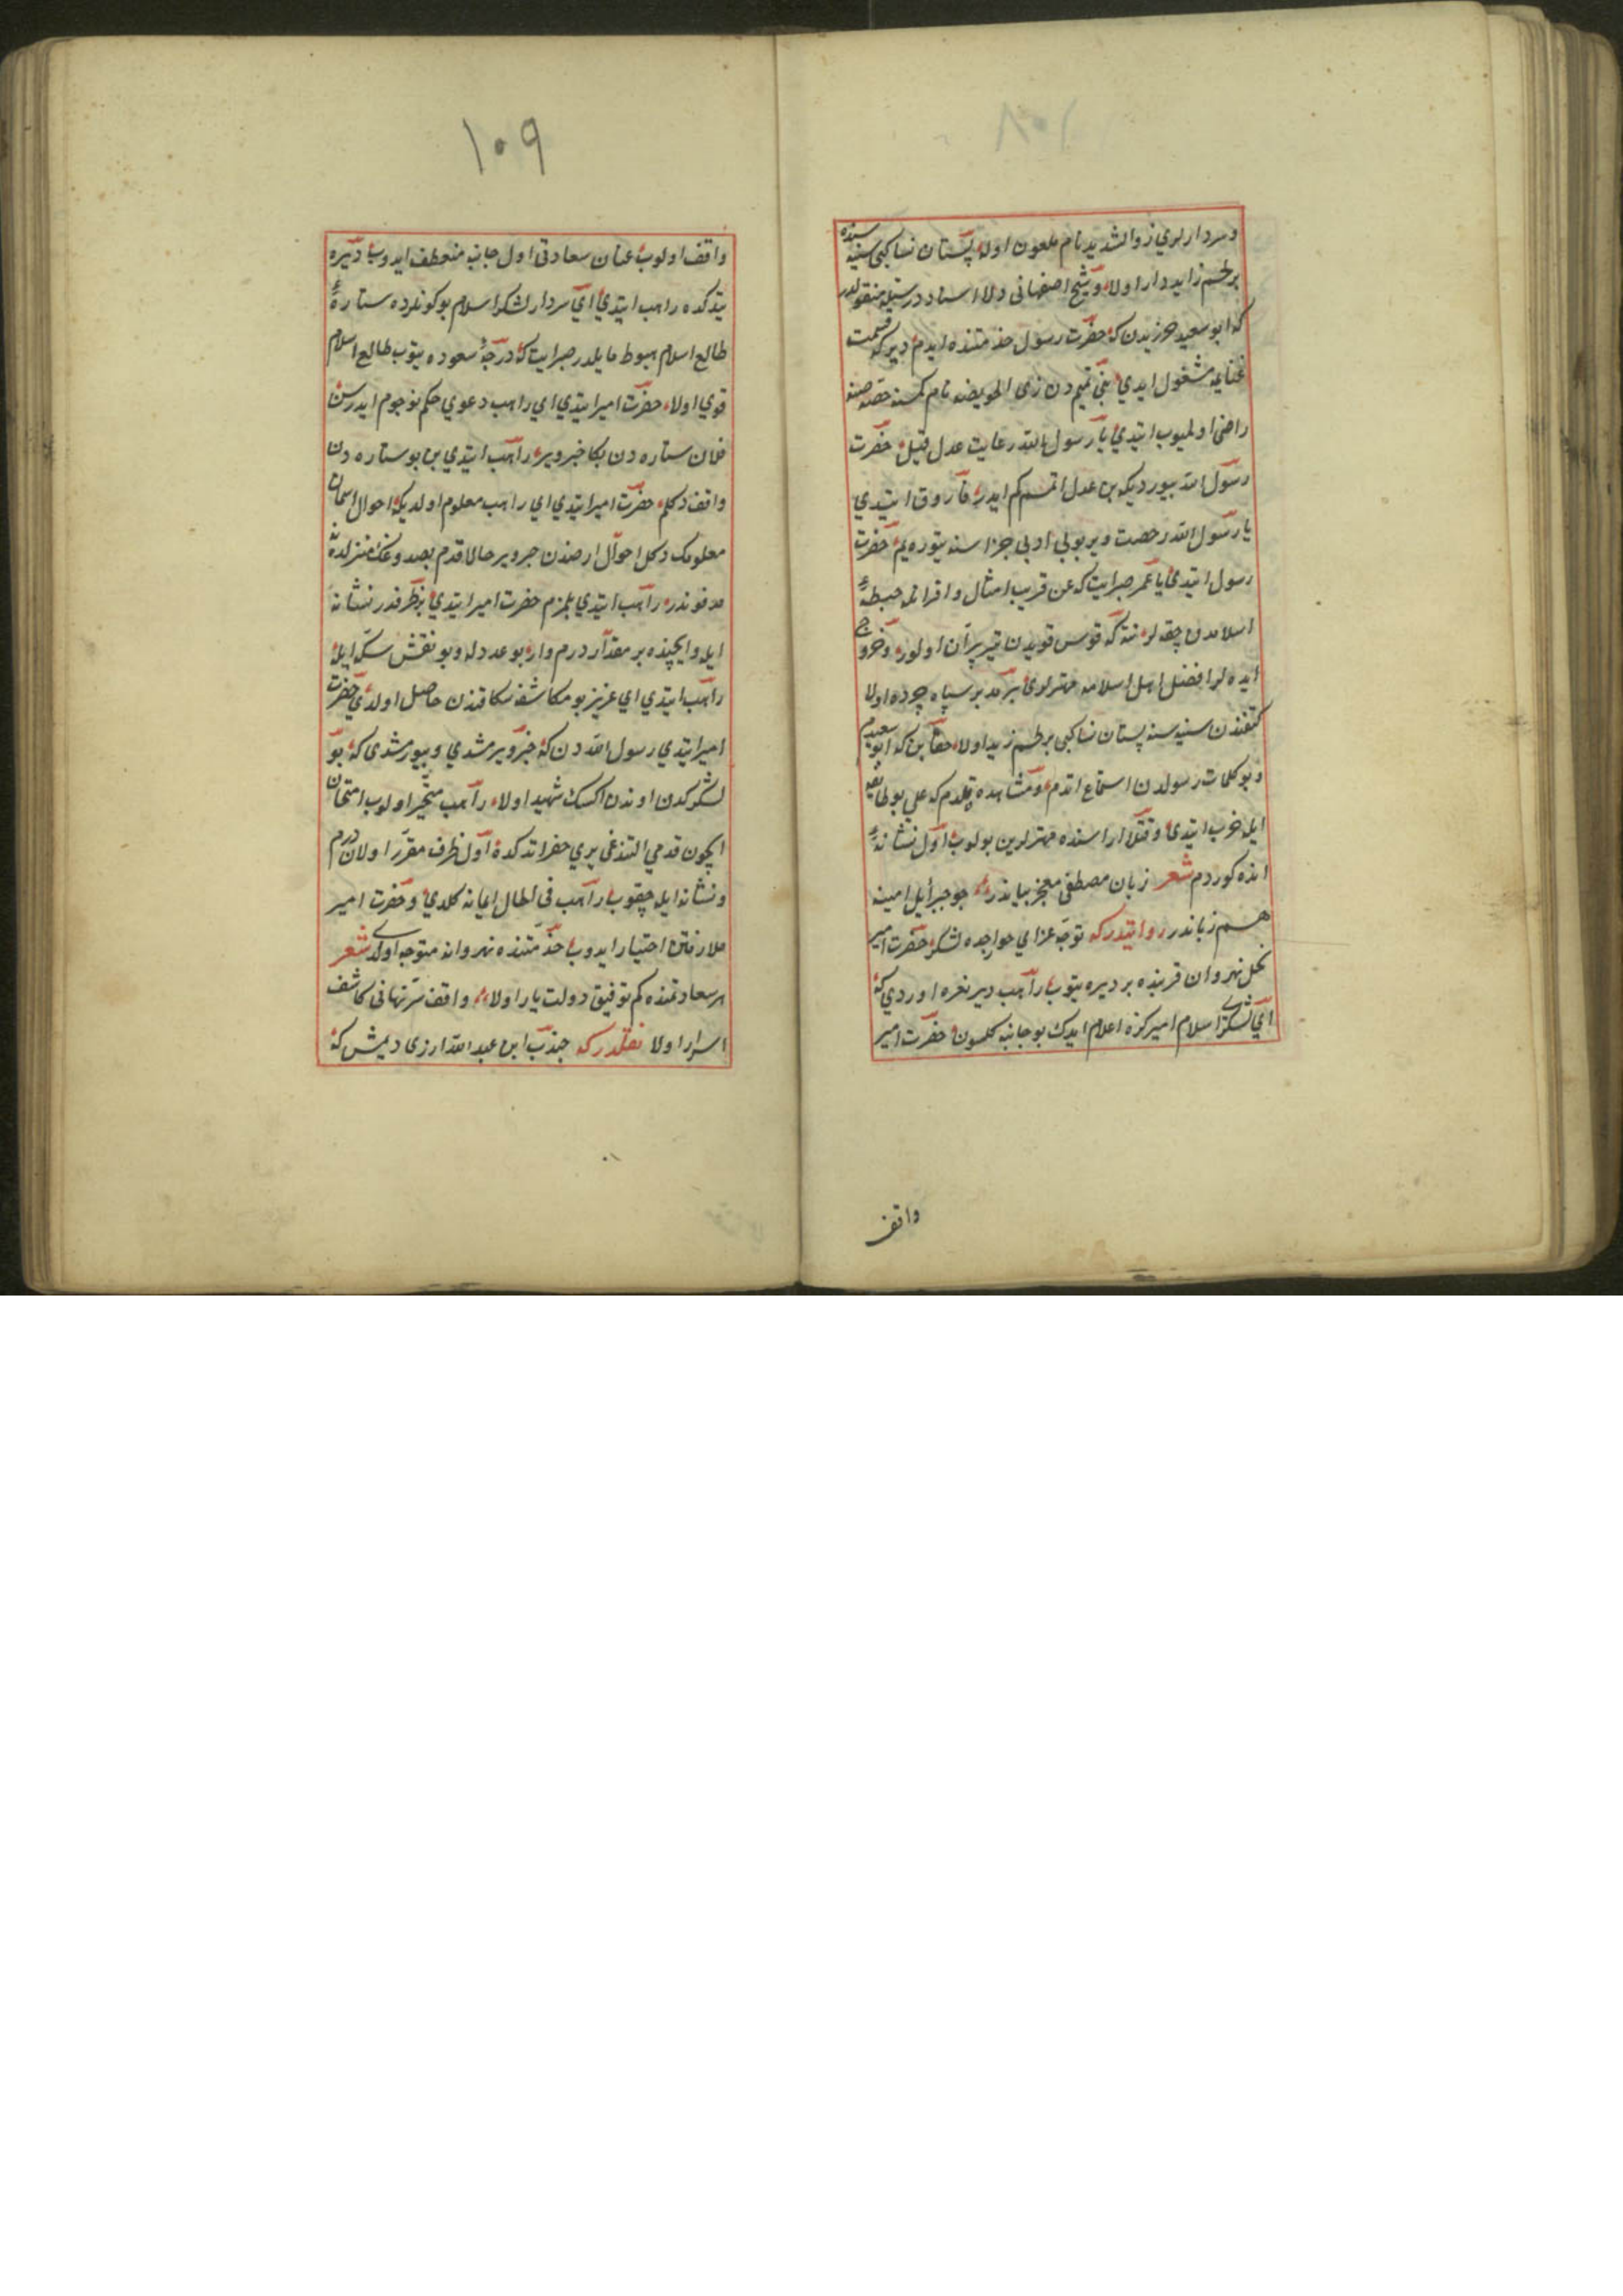 ١٠٨
وسردارلري ذوالشديد نام ملعون اوله پستان نسا كبی سینه سنده
بر لحم زايد دار اولا وشيخ اصفهانی دلا اسناد درستيله منقولدر
که ابو سعید خدریدن که حضرت رسول خدمتنده ایدم دیر که قسمت
غنایمه مشغول ایدي بنی تمیم دن ذی الخویصره نام کمسنه حصه سنه
راضی اولمیوب ایتدي یا رسول الله رعایت عدل قیل حضرت
رسول الله بیوردیکه بن عدل اتمسم کم ایدر فاروق ایتدي
یا رسول الله رخصت ویر بو بی ادبی جزاسنه یتوره یم حضرت
رسول ایتدي یا عمر صبر ایت که عن قریب امثال و اقرانله حیطهٔ
اسلامدن چقه لر نته که قوس قویدن تیر پران اولور و خروج
ایده لر افضل اهل اسلامه مهترلري بر مد بر سیاه چرده اولا
کتفندن سینه سنه پستان نسا کبی بر لحم زید اولا حقا بن که ابو سعیدم
و بو کلمات رسولدن استماع اتدم و مشاهده قلدم که علی بو طایفه
ایله حرب ایتدي و قتلا اراسنده مهترلرین بولوب اول نشانهٔ
انده کوردم شعر زبان مصطفی معجز بیاندر جو جبرأیل امینه
هم زباندر روایتدر که توجه غزای خوارجده لشکر حضرت امیر
نحل نهروان قربنده بر دیره یتوب راهب دیر نعره اوردي که
اي لشکر اسلام امیرکزه اعلام ایدك بو جانبه کلسون حضرت امیر
واقف
١٠٩
واقف اولوب عنان سعادتی اول جانبه منعطف ایدوب دیره
یتدکده راهب ایتدي اي سردار لشکر اسلام بو کونلرده ستارهٔ
طالع اسلام هبوطه مایلدر صبر ایت که درجهٔ سعوده یتوب طالع اسلام
قوي اولا حضرت امیر ایتدي اي راهب دعوي حکم نجوم ایدرسن
فلان ستاره دن بکا خبر ویر راهب ایتدي بن بو ستاره دن
واقف دکلم حضرت امیر ایتدي اي راهب معلوم اولدیکه احوال اسمان
معلومك دکل احوال ارضدن خبر ویر حالا قدم بصدوغك منزلده نه
مدفوندر راهب ایتدي بلمزم حضرت امیر ایتدي بر ظرفدر نشانه
ایله و ایچنده بر مقدار درم وار بو عدد له و بو نقش سکه ایله
راهب ایتدي اي عزیز بو مکاشفه سکا قندن حاصل اولدي حضرت
امیر ایتدي رسول الله دن که خبر ویرمشدي و بیورمشدی که بو
لشکرکدن اوندن اکسك شهید اولا راهب متحیر اولوب امتحان
ایچون قدمي التندغی یري حفر اتدکده اول ظرف مقرر اولان درم
و نشانه ایله چقوب راهب فی الحال ایمانه کلدي و حضرت امیر
ملازمتن اختیار ایدوب خدمتنده نهروانه متوجه اولدی شعر
هر سعادتمنده کم توفیق دولت یار اولا واقف سر نهانی کاشف
اسرار اولا نقلدر که جندب ابن عبد الله ازدی دیمش که